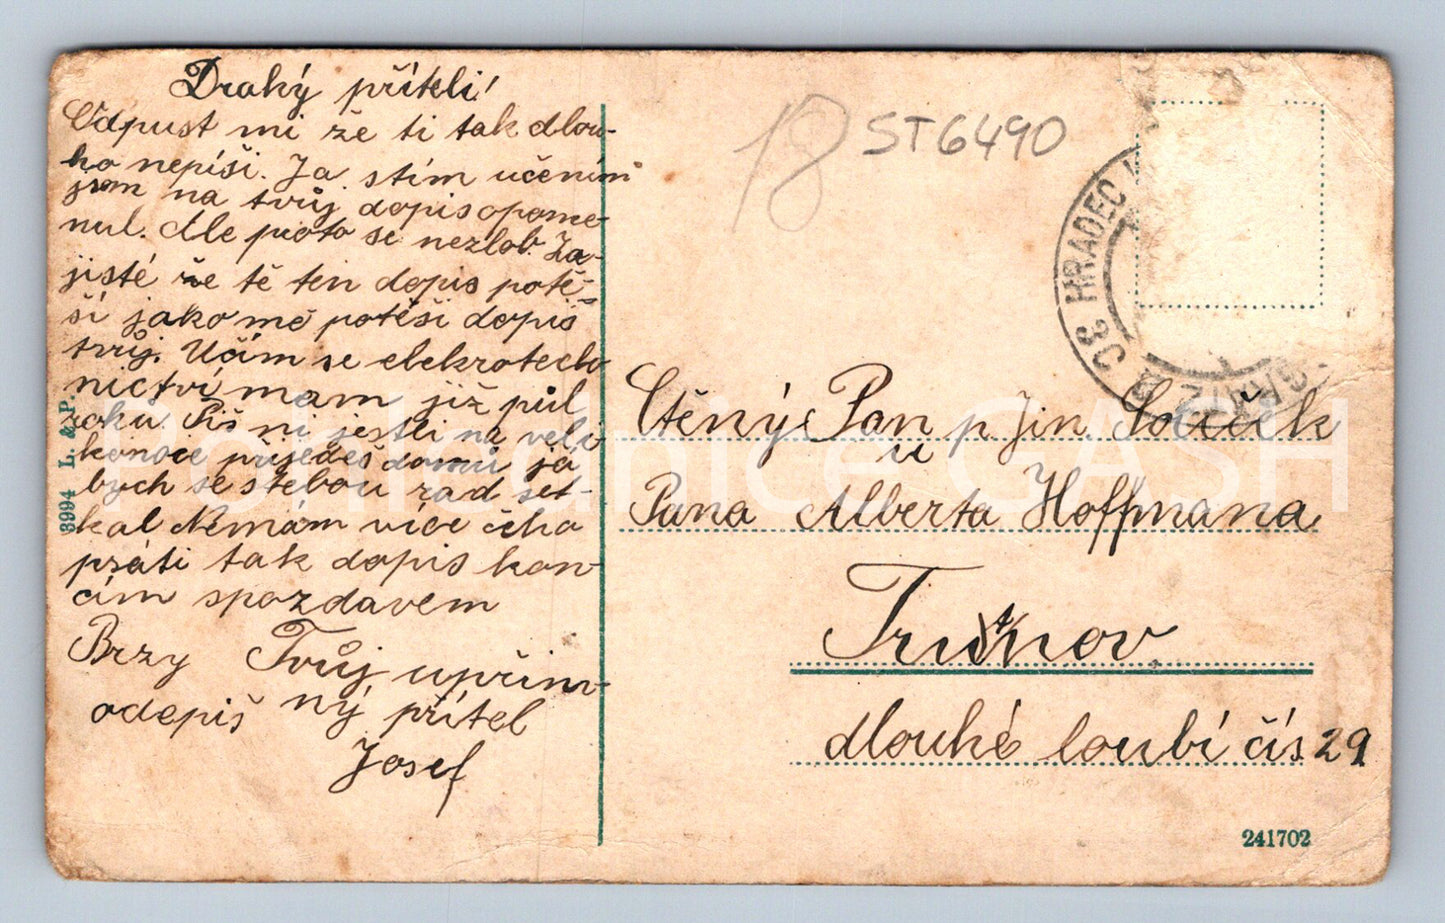 Drahý příteli!
Odpust mi že ti tak dlou-
ho nepíši. Ja stím učením
jsem na tvůj dopis opome-
nul. Ale proto se nezlob. Za-
jisté že tě ten dopis potě-
ší jako mě potěši dopis
tvůj. Učím se elekrotech
nictví mam již půl
roku. Piš ni jestli na veli
konoce přijedeš domů já
bych se stebou rad set-
kal Nemám více čeho
psáti tak dopis kon-
cím spozdavem
Brzy Tvůj upřím-
odepiš ný přítel
Josef
18 ST6490
HRADEC
Ctěný Pan p Jin.
u
Pana Alberta Hoffmana
Trutnov
dlouhé loubí čís 29
3994 L. & P.
241702
Pohlednice GASH